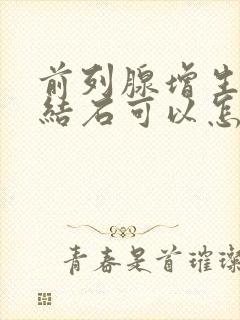 前列腺增生
結石可以怎
青春是首璀璨